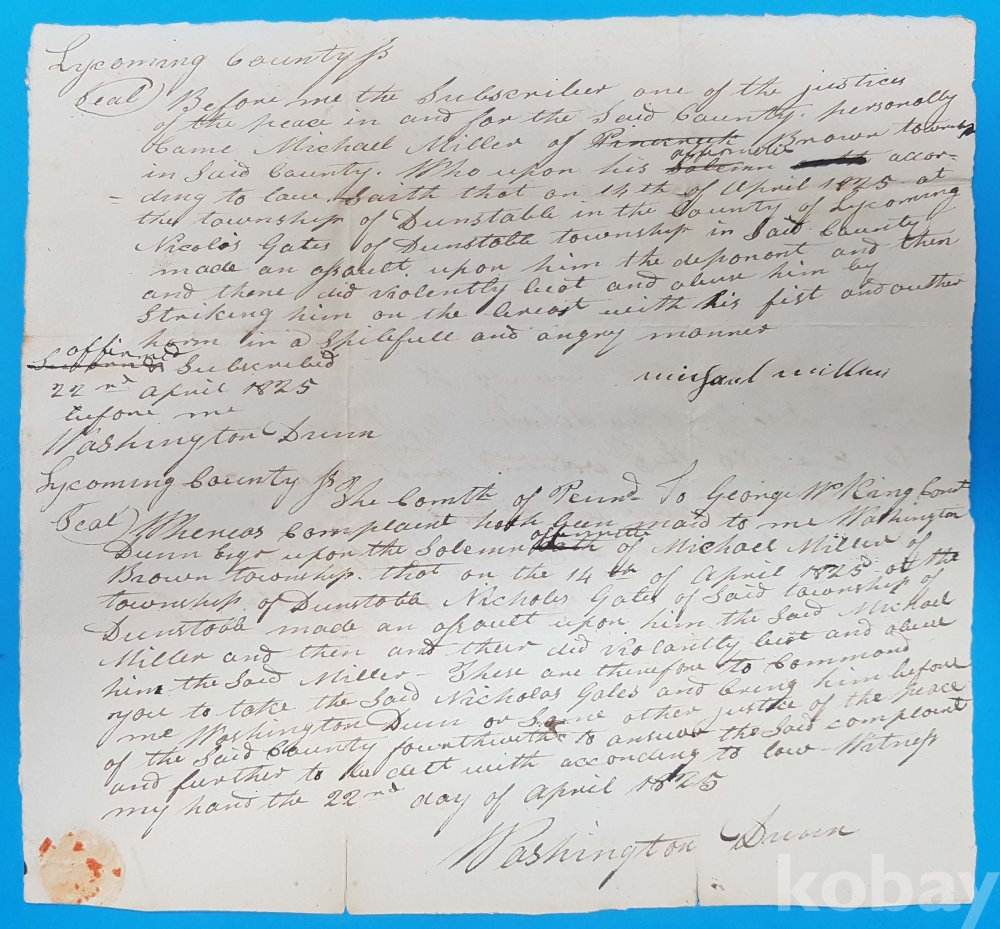 Lycoming County ss
Seal) Before me the Subscriber one of the justices
of the peace in and for the Said County. personally
Came Michael Miller of Brown township
in Said County. Who upon his Solemn affirmation accor-
= ding to law. Saith that on 14th of April 1825 at
the township of Dunstable in the County of Lycoming
Nicolos Gates of Dunstable township in Said County
made an assault. upon him the deponont and then
and there did violently beat and abuse him by
Striking him on the breast with his fist and outher
harm in a Spitefull and angry manner
affirmed
Subscribed
22nd April 1825
before me
Michael Miller
Washington Dunn
Lycoming County ss
The Comth of Pennᵃ To George McKing Const
Seal) Whereas Complaint hath been maid to me Washington
Dunn Esqr upon the Solemn of Michael Miller of
Brown township. that on the 14th of April 1825 at the
township of Dunstable Nicholes Gates of Said township of
Dunstable made an assault upon him the Said Michael
Miller and then and their did violantly beat and abuse
him the Said Miller - These are therefore to Command
you to take the Said Nicholas Gates and bring him before
me Washington Dunn or Some other justice of the Peace
of the Said County fourthwith to answer the Said complaint
and further to be delt with according to law - Witness
my hand the 22nd day of April 1825
Washington Dunn
kobay